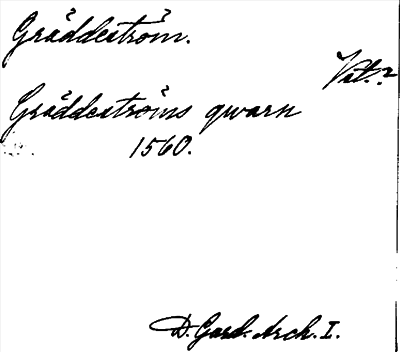 Gräddeström.
Vat.?
Gräddeströms qwarn
1560.
D. Gard. Arch. I.